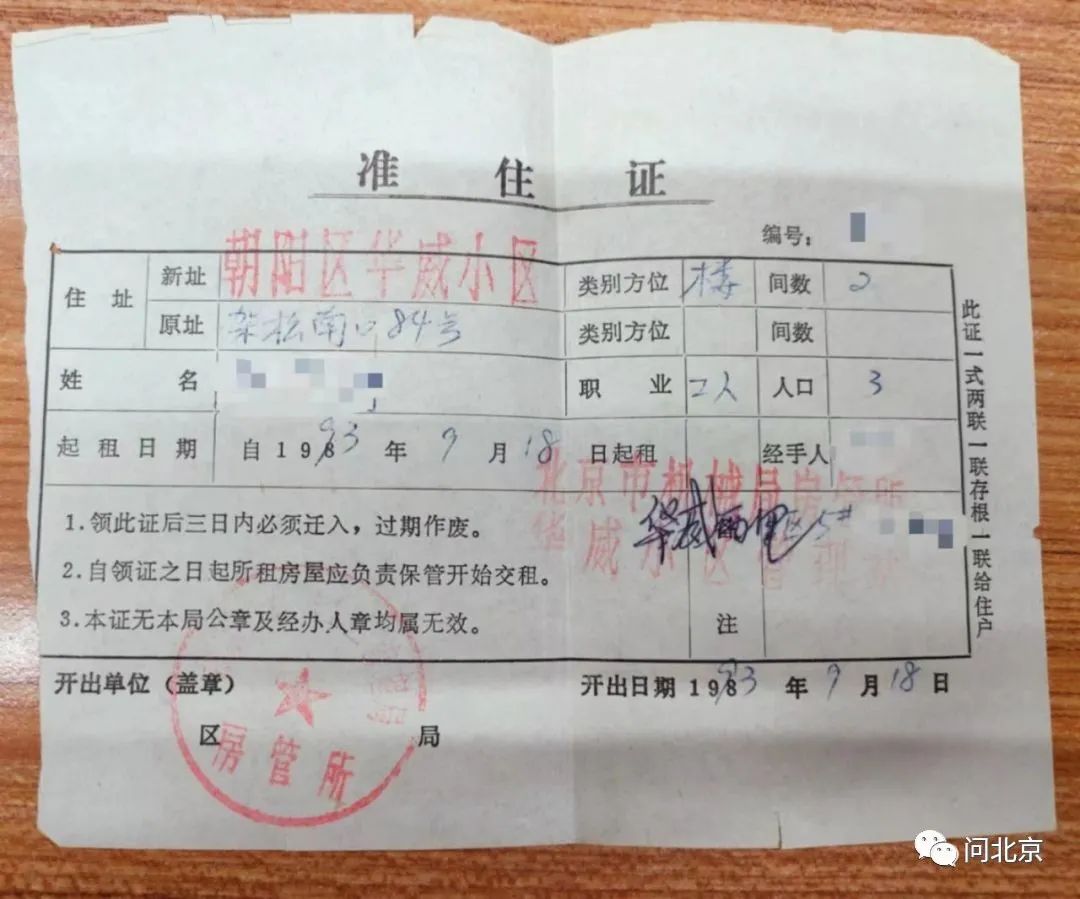 准住证
编号：
住址 新址 朝阳区华威小区 类别方位 楼 间数 2
原址 架松南口84号 类别方位 间数
姓名 职业 工人 人口 3
起租日期 自1993年9月18日起租 经手人
北京市机械局房管所
华威小区管理站
华威西里 区5#
1.领此证后三日内必须迁入，过期作废。
2.自领证之日起所租房屋应负责保管开始交租。
3.本证无本局公章及经办人章均属无效。
注
此证一式两联一联存根一联给住户
开出单位（盖章） 开出日期1993年9月18日
区 局
房管所
问北京